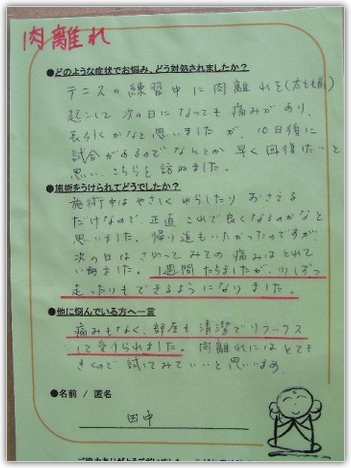 肉離れ
●どのような症状でお悩み、どう対処されましたか?
テニスの練習中に肉離れを(太もも前)
起こして次の日になっても痛みがあり、
長引くかなと思いましたが、10日後に
試合があるのでなんとか早く回復したいと
思い、こちらを訪ねました。
●施術をうけられてどうでしたか?
施術中はやさしくゆらしたりおさえる
だけなので、正直これで良くなるのかなと
思いました。帰り道もいたかったのですが
次の日はさわってみての痛みはとれて
いました。1週間たちましたが、少しずつ
走ったりもできるようになりました。
●他に悩んでいる方へ一言
痛みもなく、部屋も清潔でリラックス
して受けられました。肉離れにはとても
きくので試してみていいと思います。
●名前 / 匿名
田中